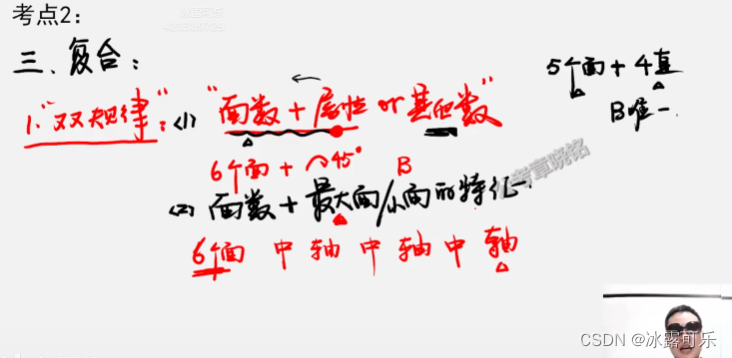 考点2：
三、复合：
5个面 + 4直
B唯一
1."双规律"：<1> "面数 + 属性 or 其他数"
6个面 + 45° B
<2> 面数 + 最大面/小面的特征
6个面 中 轴 中 轴 中 轴
公考章晓铭
CSDN @冰露可乐